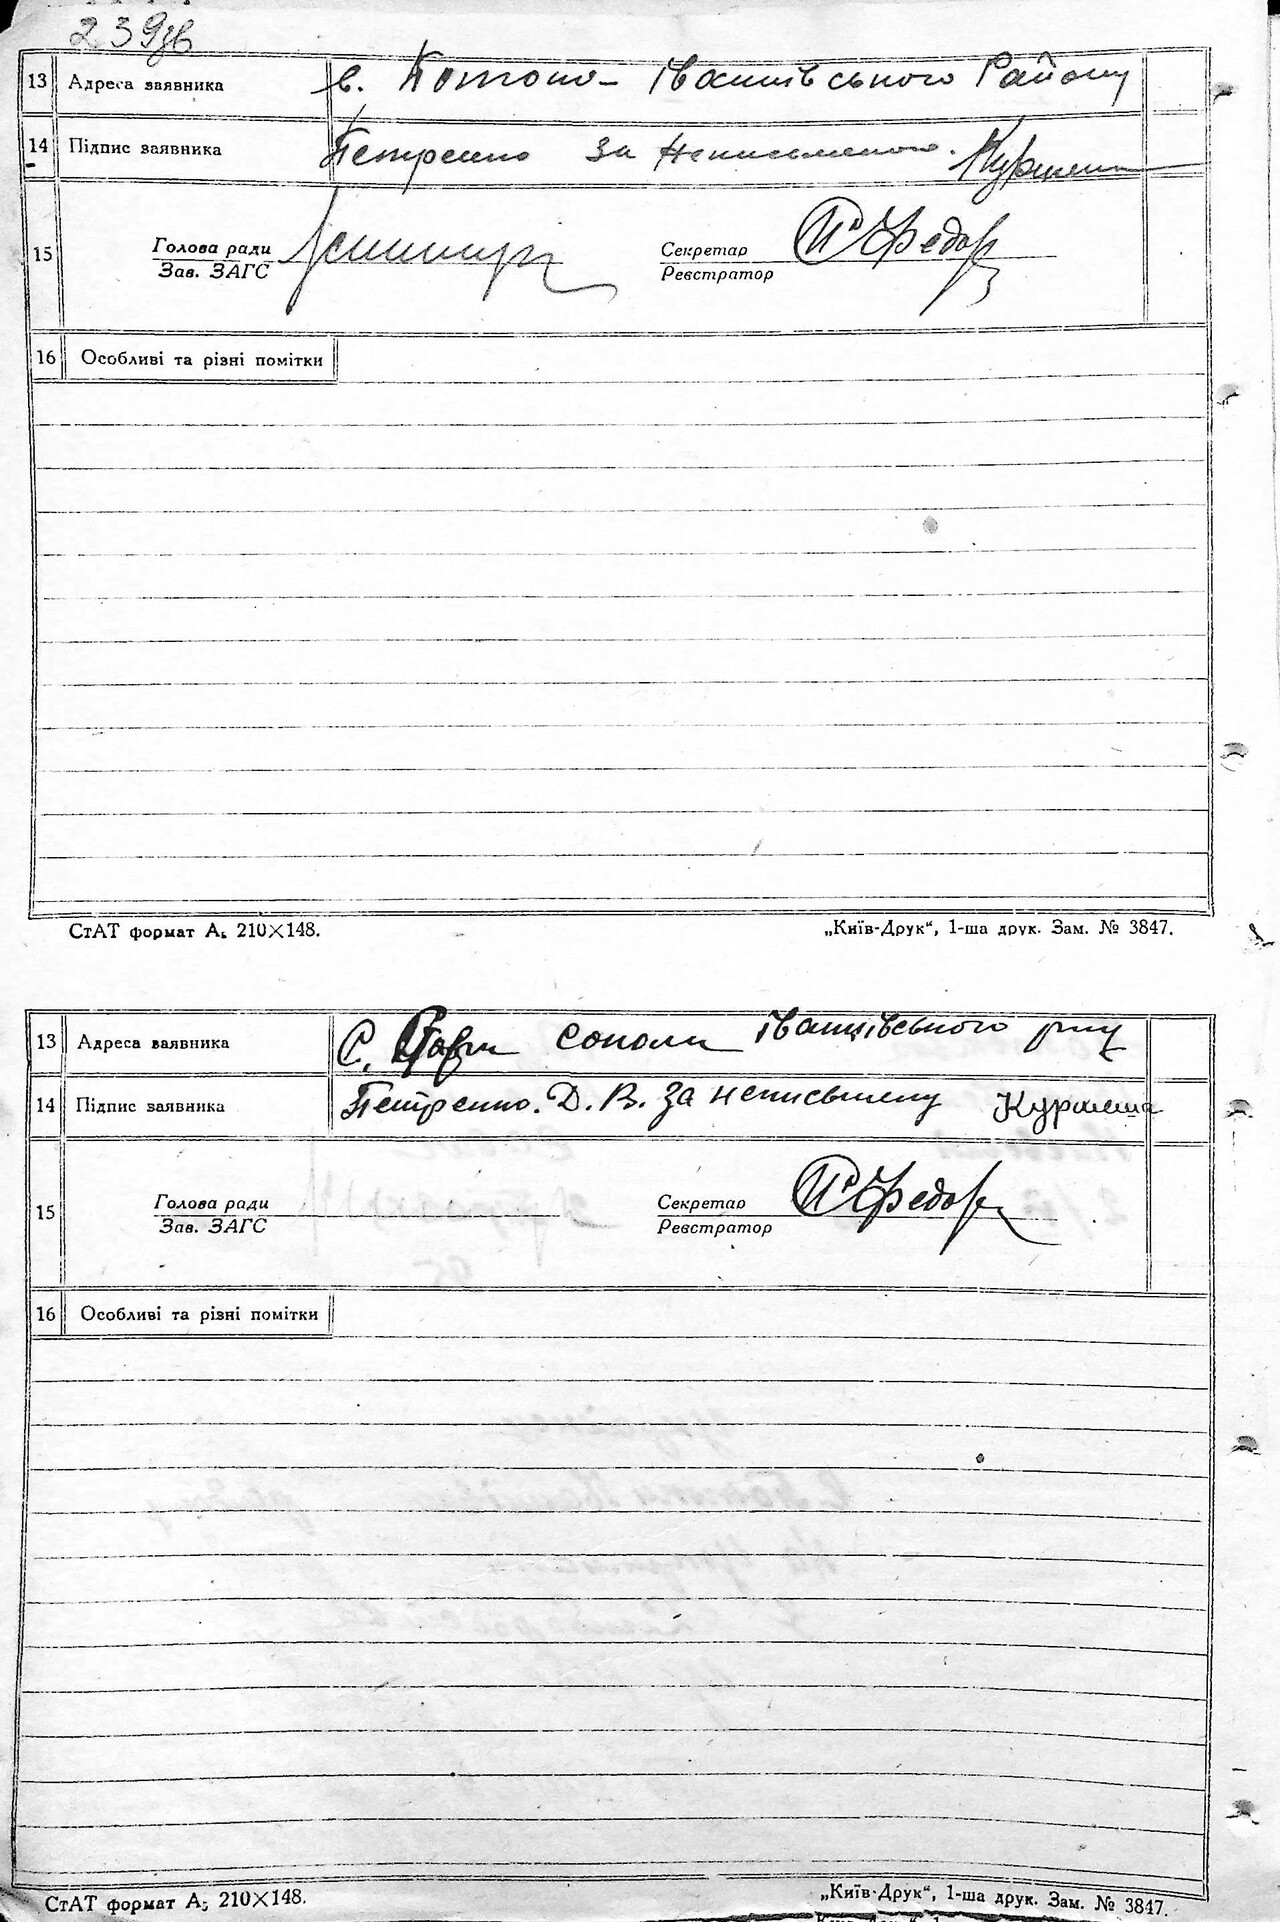 239зв
13 Адреса заявника с. Потоки Іванківського Району
14 Підпис заявника Петренко за Неписьменого.
15 Голова ради Секретар Федор
Зав. ЗАГС Реєстратор
16 Особливі та різні помітки
СтАТ формат А5 210×148. „Київ-Друк“, 1-ша друк. Зам. № 3847.
13 Адреса заявника С. Стари соколи Іванківського р-ну
14 Підпис заявника Петренко. Д. В. За неписьмену
15 Голова ради Секретар Федор
Зав. ЗАГС Реєстратор
16 Особливі та різні помітки
СтАТ формат А5 210×148. „Київ-Друк“, 1-ша друк. Зам. № 3847.